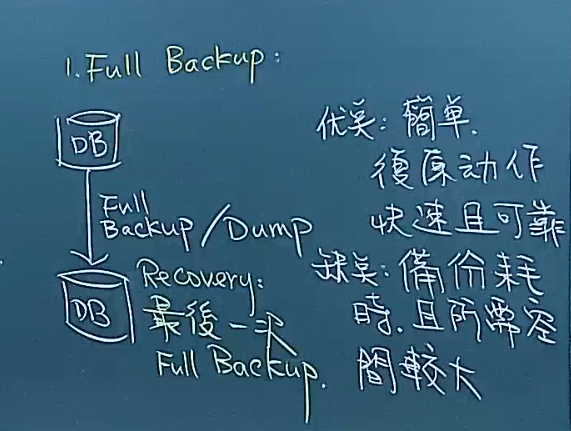 1. Full Backup:
DB
Full
Backup/Dump
DB
Recovery:
最後一次
Full Backup.
优点: 簡单.
復原动作
快速且可靠
缺点: 備份耗
時. 且所需空
間較大